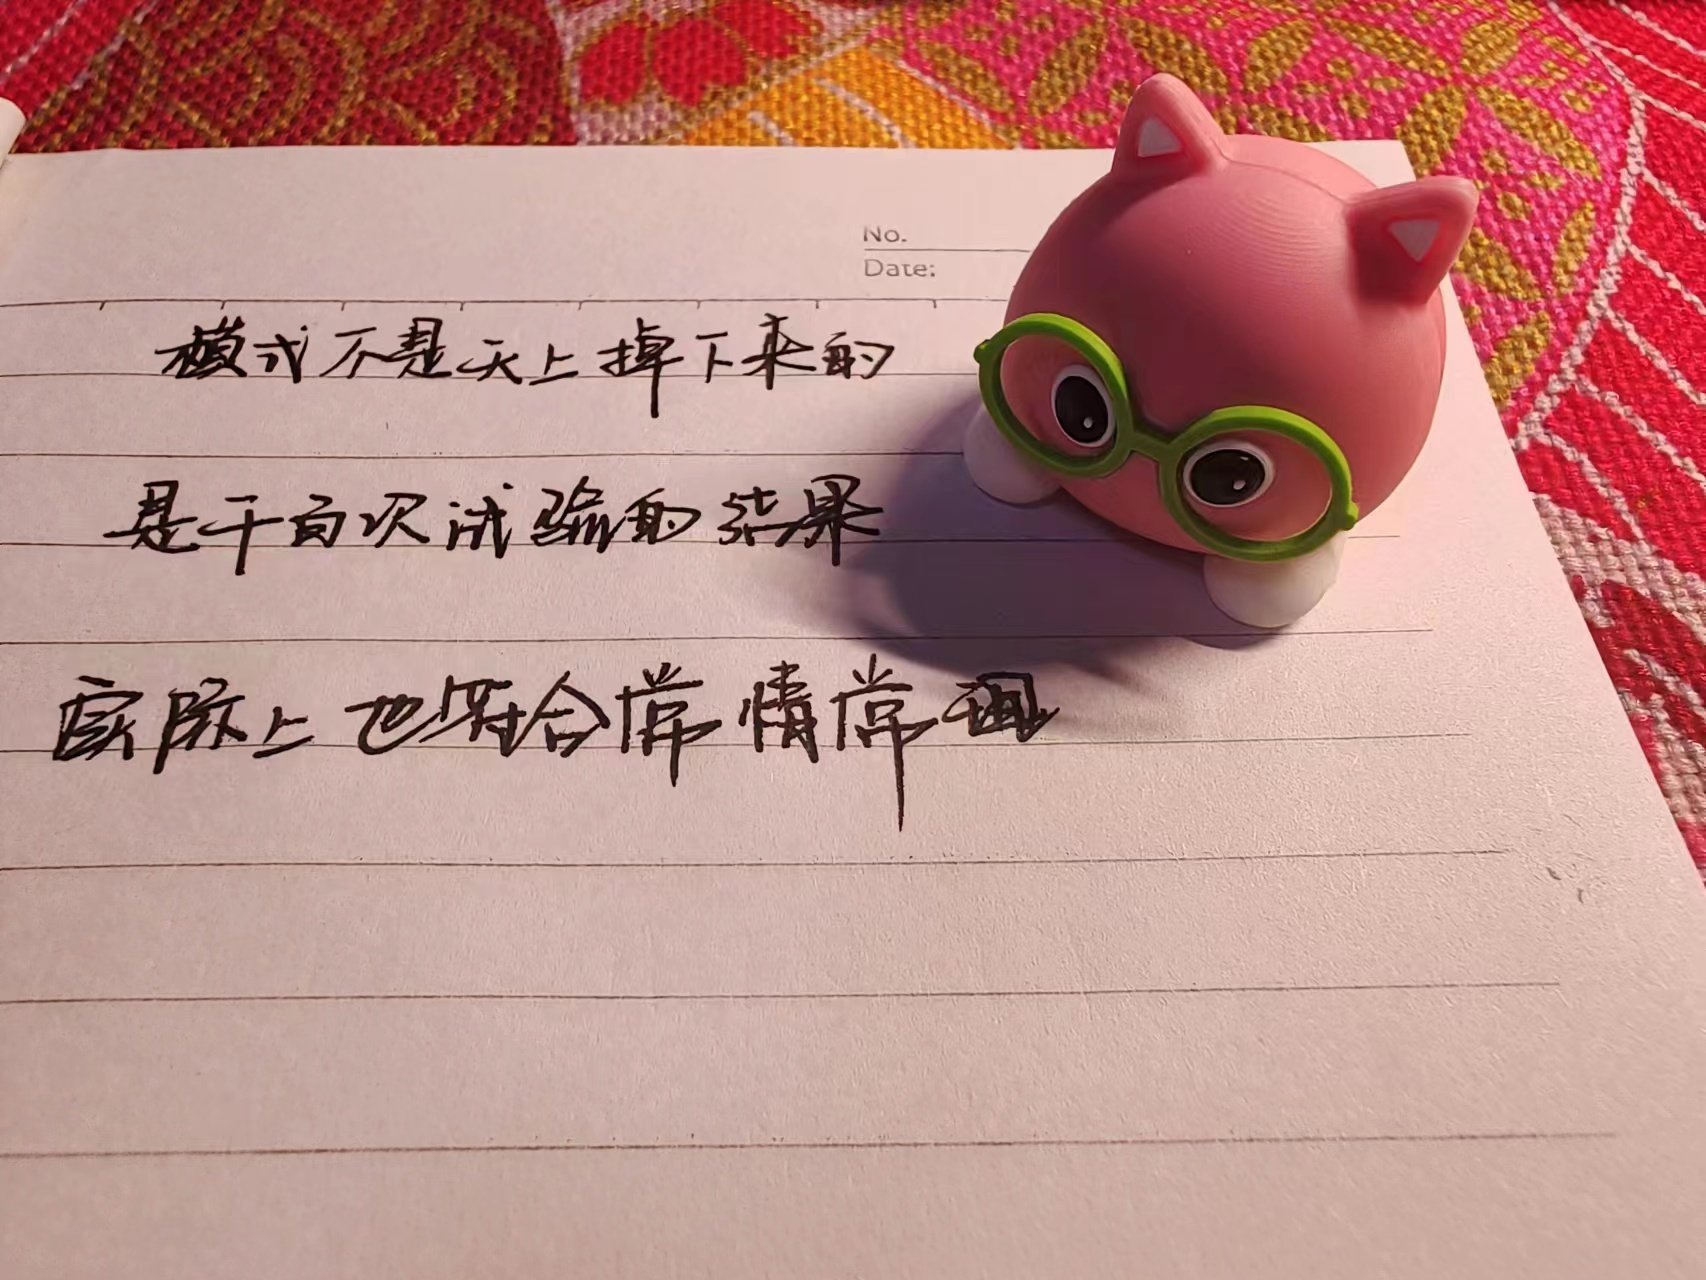 No.
Date:
模式不是天上掉下来的
是千百次试验的结果
实际上也符合常情常理